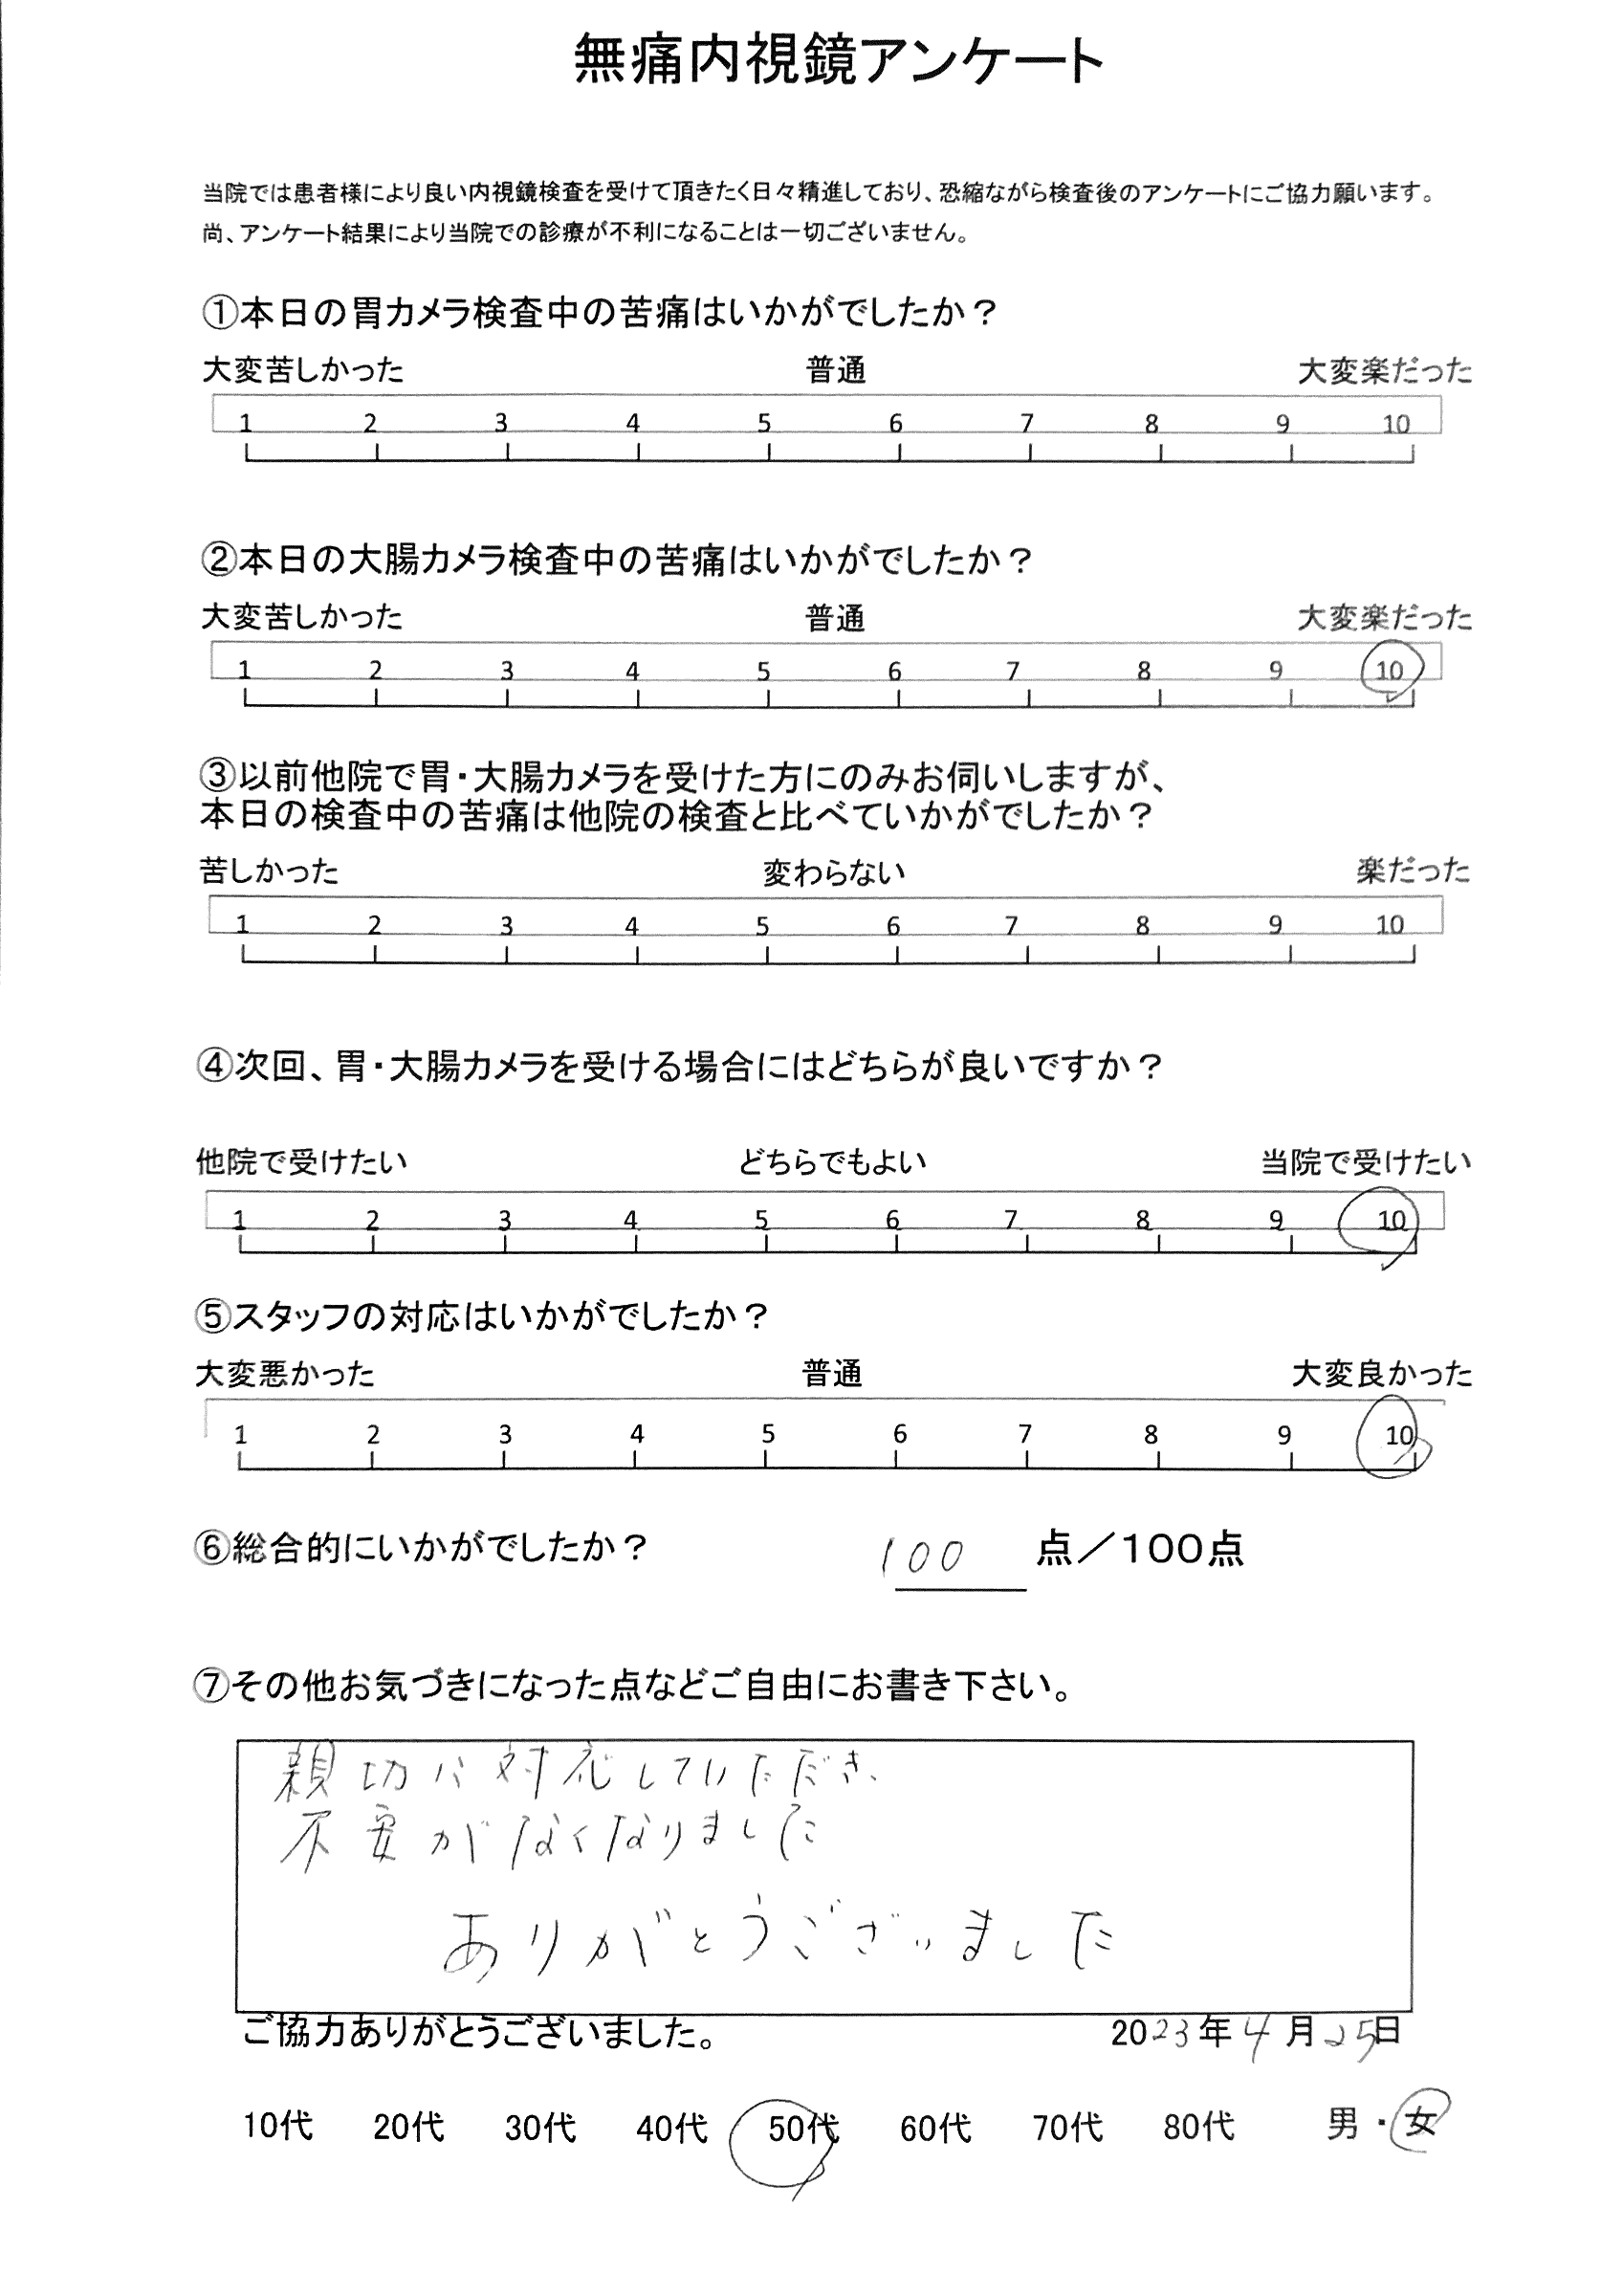 無痛内視鏡アンケート
当院では患者様により良い内視鏡検査を受けて頂きたく日々精進しており、恐縮ながら検査後のアンケートにご協力願います。
尚、アンケート結果により当院での診療が不利になることは一切ございません。
①本日の胃カメラ検査中の苦痛はいかがでしたか？
大変苦しかった 普通 大変楽だった
1 2 3 4 5 6 7 8 9 10
②本日の大腸カメラ検査中の苦痛はいかがでしたか？
大変苦しかった 普通 大変楽だった
1 2 3 4 5 6 7 8 9 10
③以前他院で胃・大腸カメラを受けた方にのみお伺いしますが、
本日の検査中の苦痛は他院の検査と比べていかがでしたか？
苦しかった 変わらない 楽だった
1 2 3 4 5 6 7 8 9 10
④次回、胃・大腸カメラを受ける場合にはどちらが良いですか？
他院で受けたい どちらでもよい 当院で受けたい
1 2 3 4 5 6 7 8 9 10
⑤スタッフの対応はいかがでしたか？
大変悪かった 普通 大変良かった
1 2 3 4 5 6 7 8 9 10
⑥総合的にいかがでしたか？ 100 点／100点
⑦その他お気づきになった点などご自由にお書き下さい。
親切に対応していただき、
不安がなくなりました
ありがとうございました
ご協力ありがとうございました。 2023年4月25日
10代 20代 30代 40代 50代 60代 70代 80代 男・女